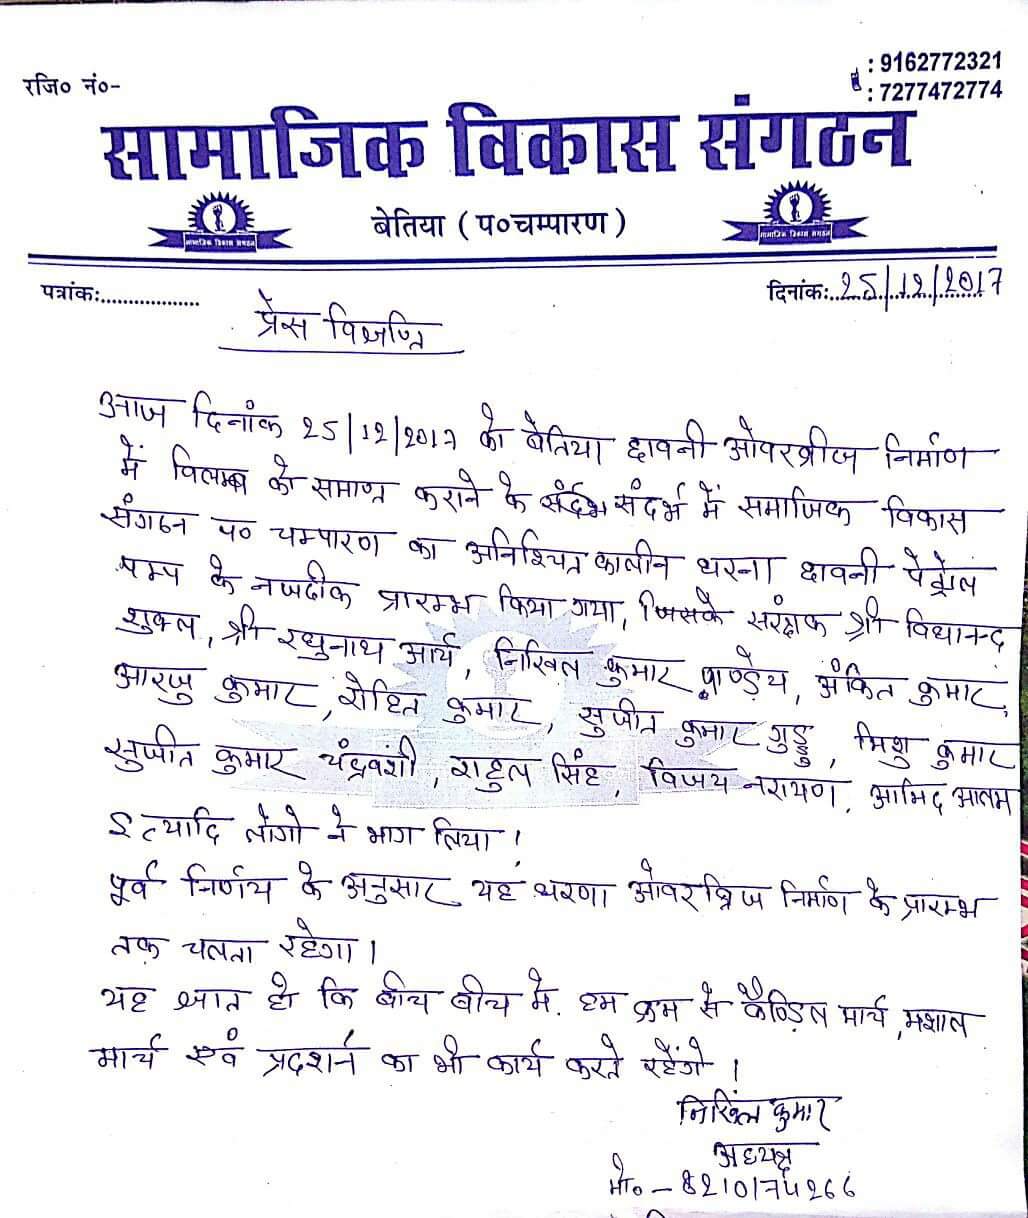 रजि० नं०-
: 9162772321
: 7277472774
सामाजिक विकास संगठन
सामाजिक विकास संगठन
बेतिया (प०चम्पारण)
सामाजिक विकास संगठन
पत्रांक:..................
दिनांक: 25/12/2017
प्रेस विज्ञप्ति
आज दिनांक 25/12/2017 को बेतिया छावनी ओवरब्रीज निर्माण
में विलम्ब को समाप्त कराने के संदर्भ में समाजिक विकास
संगठन प० चम्पारण का अनिश्चित कालीन धरना छावनी पेट्रोल
पम्प के नजदीक प्रारम्भ किया गया, जिसके संरक्षक श्री विधानन्द
शुक्ल, श्री रघुनाथ आर्य, निखिल कुमार पाण्डेय, अंकित कुमार,
आरजु कुमार, रोहित कुमार, सुजीत कुमार गुड्डु, मिशु कुमार
सुजीत कुमार चंद्रवंशी, राहुल सिंह, विजय नरायण, आमिद आलम
इत्यादि लोगो ने भाग लिया।
पूर्व निर्णय के अनुसार यह धरणा ओवरब्रिज निर्माण के प्रारम्भ
तक चलता रहेगा।
यह ज्ञात हो कि बीच बीच में हम क्रम से कैण्डिल मार्च, मशाल
मार्च एवं प्रदर्शन का भी कार्य करते रहेंगे।
निखिल कुमार
अध्यक्ष
मो० - 8210174266